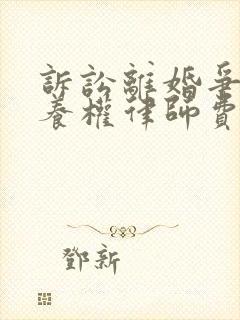 訴訟離婚爭
養權律師費
鄧新